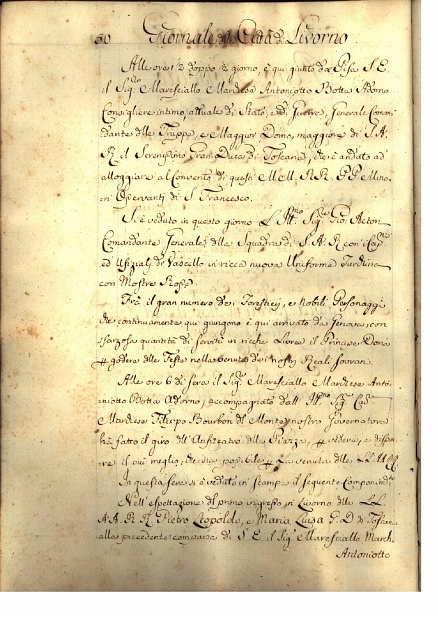 80 Giornale della Città di Livorno
Alle ore 1/2 doppo 1/2 giorno, è qui giunto da Pisa S. E.
il Sig.re Maresciallo Marchese Antoniotto Botta Adorno
Consigliere intimo, attuale di Stato, e di Guerra, Generale Coman
dante delle Truppe, e Maggior Domo, maggiore di S. A.
R. il Serenissimo Gran Duca di Toscana, ed è andato ad
alloggiare al Convento di questi M. M. R. R. P. P. Mino
ri Osservanti di S. Francesco.
Si è veduto in questo giorno L' Ill.mo Sig.re Gio. Acton
Comandante Generale della Squadra di S. A. R. con i Cap.ni
ed Ufiziali di Vascello in ricca nuova Uniforme Turchina
con Mostre Rosse
Frà il gran numero dei Forestieri, e Nobili Personaggi
che continuamente qui giungono è qui arrivato da Genova, con
sfarzosa quantità di serviti in ricche Livree il Principe Doria
p godere delle Feste nella venuta dei nostri Reali Sovrani.
Alle ore 6 di sera il Sig.re Maresciallo Marchese Anto
niotto Botta Adorno, accompagnato dall' Ill.mo Sig.re Cav.re
Marchese Filippo Bourbon del Monte nostro Governatore
hà fatto il giro dell' Anfiteatro della Piazza, p vedere, e dispor
re il più meglio, che sia possibile p La venuta delle LL. AA. RR.
In questa sera si è veduto in stampa il seguente Componim.to
Nell' espettazione del primo ingresso in Livorno delle LL.
A. A. R. R. Pietro Leopoldo, e Maria Luisa G. D. di Toscana
alla precedente comparsa di S. E. il Sig.re Maresciallo March.
Antoniotto